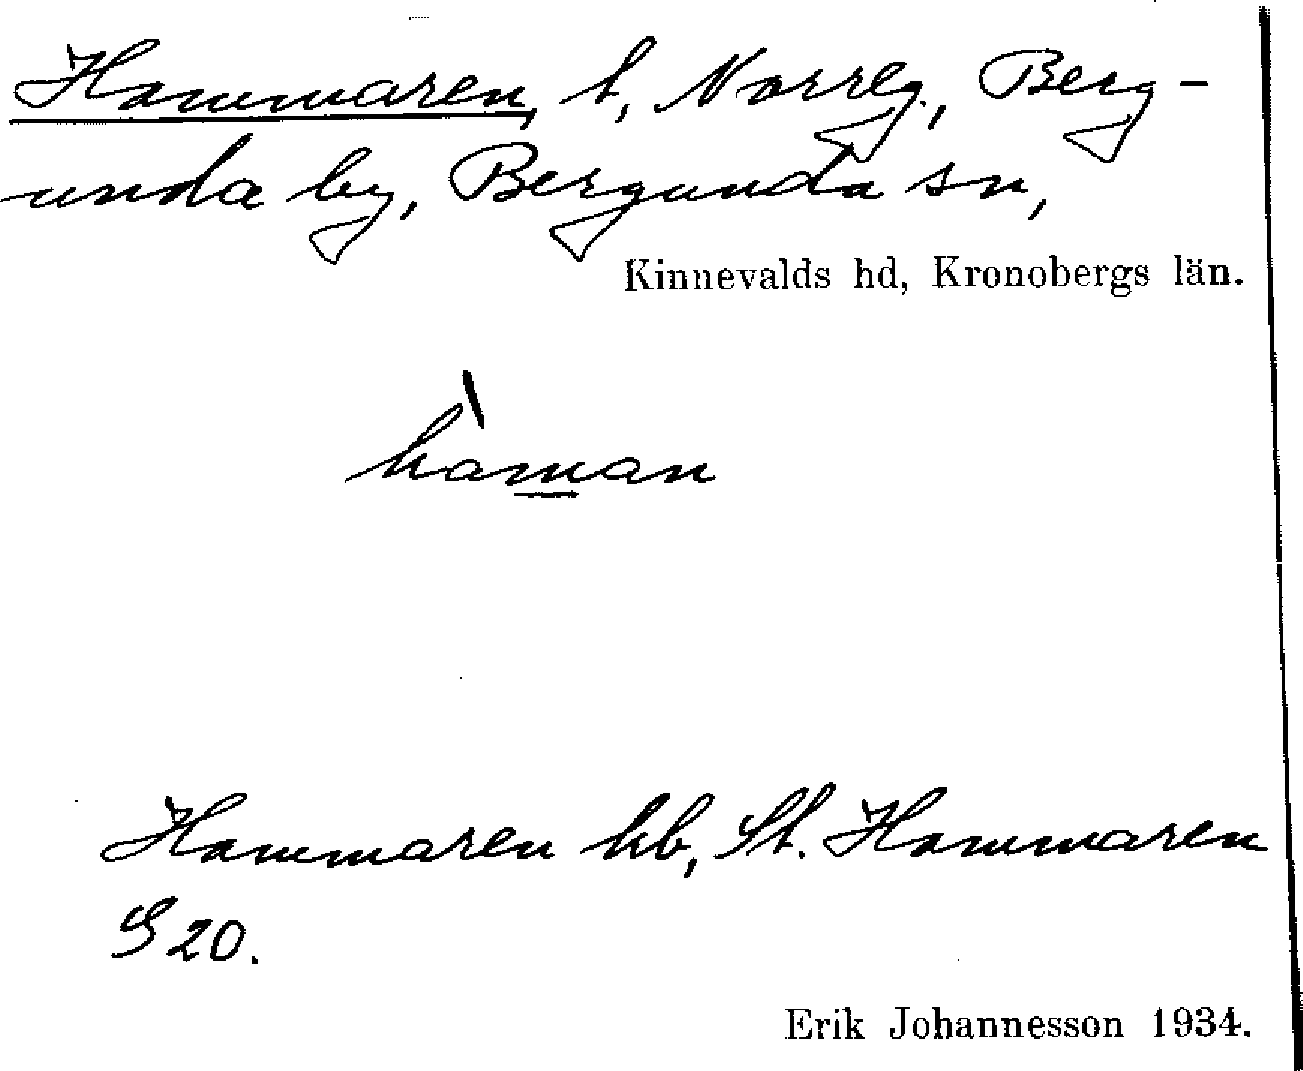 Hammaren, t, Norreg., Berg-
unda by, Bergunda sn,
Kinnevalds hd, Kronobergs län.
hàm̲an
Hammaren hb, St. Hammaren
S 20.
Erik Johannesson 1934.